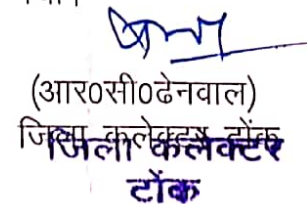 (आर०सी०ढेनवाल)
जिला कलेक्टर टोंक
जिला कलेक्टर
टोंक